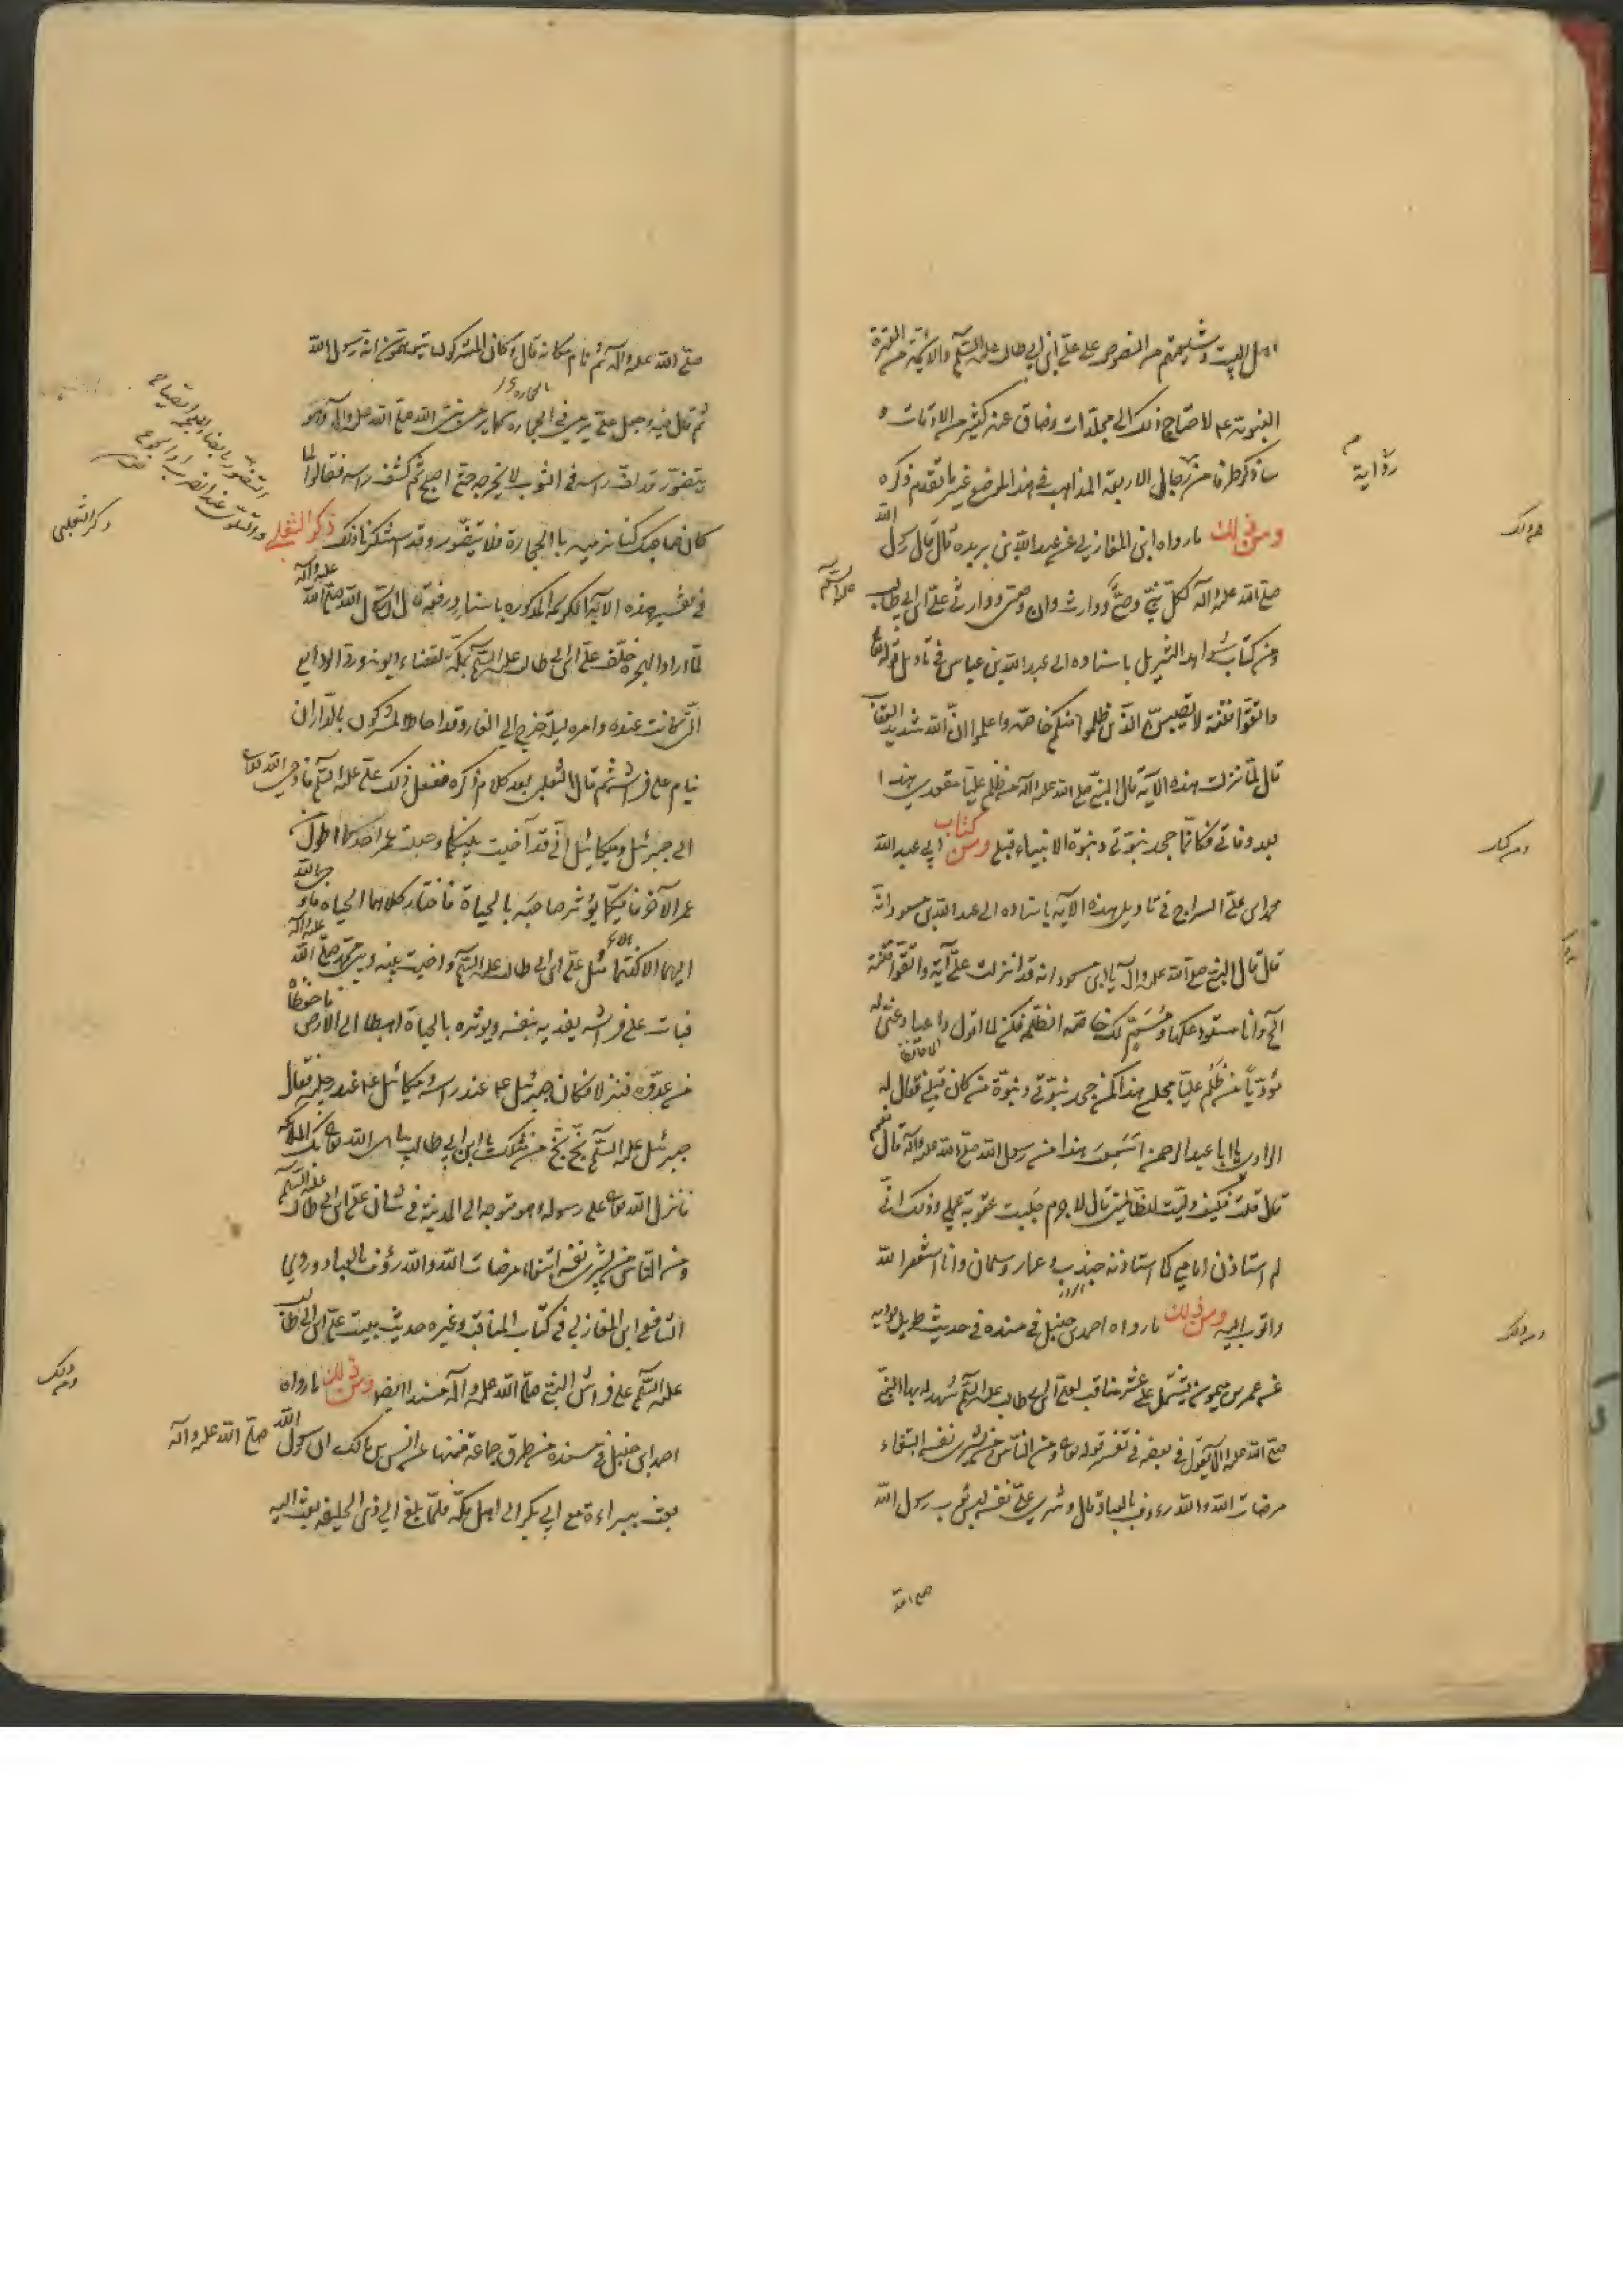 اهل البيت وشيعتهم من النصوص على علي بن ابي طالب عليه السلام والائمة من العترة
النبوية عم لاحتاج ذلك الى مجلدات وضاق عنه كثير من الاوقات و
ساذكر طرفا من رجال الاربعة المذاهب في هذا الموضع غير ما تقدم ذكره
ومن ذلك ما رواه ابن المغازلي عن عبد الله بن بريده قال قال رسول الله
صلى الله عليه واله لكل نبي وصي ووارث وان وصيي ووارثي علي بن ابي طالب عليه السلام
ومن كتاب شواهد التنزيل باسناده الى عبد الله بن عباس في تاويل قوله تعالى
واتقوا فتنة لا تصيبن الذين ظلموا منكم خاصة واعلموا ان الله شديد العقاب
قال لما نزلت هذه الآية قال النبي صلى الله عليه واله من ظلم عليا مقعدي هذا
بعد وفاتي فكانما جحد نبوتي ونبوة الانبياء قبلي ومن كتاب ابي عبد الله
محمد بن علي السراج في تاويل هذه الآية باسناده الى عبد الله بن مسعود انه
قال قال النبي صلى الله عليه واله يا ابن مسعود انه قد انزلت علي آية واتقوا فتنة
الخ وانا مستودعكها ومسم لك خاصة الظلمة فكن لما اقول واعيا وعني له
مؤديا من ظلم عليا مجلسي هذا كمن جحد نبوتي ونبوة من كان قبلي فقال له
الراوي يا ابا عبد الرحمن اسمعت هذا من رسول الله صلى الله عليه واله قال نعم
قال قلت فكيف وليت للظالمين قال لا جرم جلبت عقوبة عملي وذلك اني
لم استاذن امامي كما استاذنه جندب وعمار وسلمان وانا استغفر الله
واتوب اليه ومن ذلك ما رواه احمد بن حنبل في مسنده في حديث طويل يرويه
عن عمر بن ميمون يشتمل على عشر مناقب لعلي بن ابي طالب عليه السلام شهد له بها النبي
صلى الله عليه واله يقول في بعضه في تفسير قوله تعالى ومن الناس من يشري نفسه ابتغاء
مرضات الله والله رءوف بالعباد قال وشرى علي نفسه لبس ثوب رسول الله
صلى الله
رواية
ومن ذلك
ومن كتاب
ومن ذلك
صلى الله عليه واله ثم نام مكانه قال وكان المشركون يتوهمون انه رسول الله
ثم قال فيه وجعل علي يرمى في الحجارة كما يرمى نبي الله صلى الله عليه واله وهو
يتضور قد لف راسه في الثوب لا يخرجه حتى اصبح ثم كشف راسه فقالوا لما
كان صاحبك كنا نرميه بالحجارة فلا يتضور وقد استنكرنا ذلك ذكر الثعلبي
في تفسير هذه الآية الكريمة المذكورة باسناد رفعه قال ان رسول الله صلى الله عليه واله
لما اراد الهجرة خلف علي بن ابي طالب عليه السلام بمكة لقضاء ديونه ورد الودايع
التي كانت عنده وامره ليلة خرج الى الغار وقد احاط المشركون بالدار ان
ينام على فراشه ثم قال الثعلبي بعد كلام ذكره ففعل ذلك علي عليه السلام فاوحى الله تعالى
الى جبرئيل وميكائيل اني قد آخيت بينكما وجعلت عمر احدكما اطول من
عمر الآخر فايكما يؤثر صاحبه بالحياة فاختار كلاهما الحياة فاوحى الله
اليهما الا كنتما مثل علي بن ابي طالب عليه السلام واخيت بينه وبين محمد صلى الله عليه واله
فبات على فراشه يفديه بنفسه ويوثره بالحياة اهبطا الى الارض فاحفظاه
من عدوه فنزلا فكان جبرئيل عم عند راسه وميكائيل عم عند رجليه فقال
جبرئيل عليه السلام بخ بخ من مثلك يا ابن ابي طالب يباهي الله تعالى بك الملائكة
فانزل الله تعالى على رسوله وهو متوجه الى المدينة في شان علي بن ابي طالب عليه السلام
ومن الناس من يشري نفسه ابتغاء مرضات الله والله رؤف بالعباد وروى
الشافعي ابن المغازلي في كتاب المناقب وغيره حديث مبيت علي بن ابي طالب
عليه السلام على فراش النبي صلى الله عليه واله مسندا ايضا ومن ذلك ما رواه
احمد بن حنبل في مسنده من طرق جماعة فمنها عن انس بن مالك ان رسول الله صلى الله عليه واله
بعث ببراءة مع ابي بكر الى اهل مكة فلما بلغ الى ذي الحليفة بعث اليه
ذكر الثعلبي
ومن ذلك